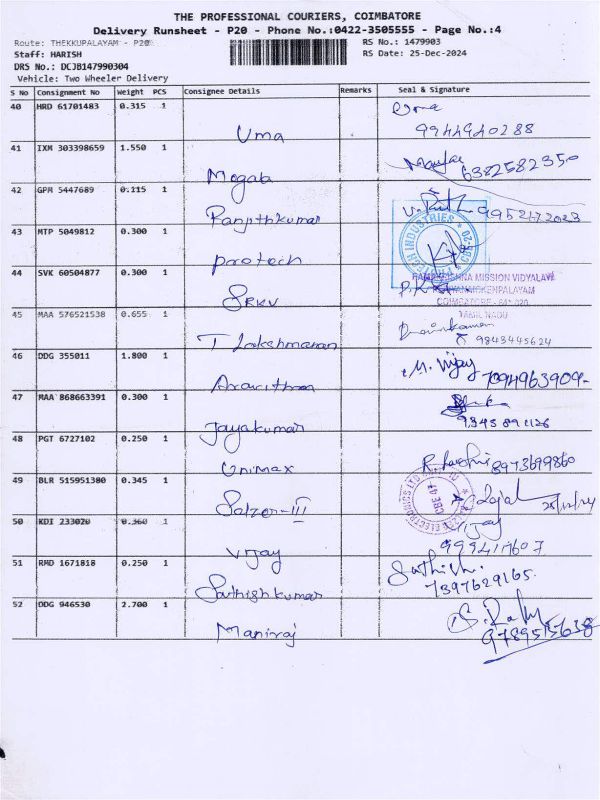 THE PROFESSIONAL COURIERS, COIMBATORE
Delivery Runsheet - P20 - Phone No.:0422-3505555 - Page No.:4
Route: THEKKUPALAYAM - P20
RS No.: 1479903
Staff: HARISH
RS Date: 25-Dec-2024
DRS No.: DCJB147990304
Vehicle: Two Wheeler Delivery
S No Consignment No Weight PCS Consignee Details Remarks Seal & Signature
40 HRD 61701483 0.315 1
Uma
Uma
9944940288
41 IXM 303398659 1.550 1
6382582350
42 GPM 5447689 0.115 1
Ranjithkumar
9952172023
43 MTP 5049812 0.300 1
protech
44 SVK 60504877 0.300 1
SRKV
RAMAKRISHNA MISSION VIDYALAYA
PERIYANAICKENPALAYAM
COIMBATORE - 641 020
TAMIL NADU
45 MAA 576521538 0.655 1
T Lakshmanan
9843445624
46 DDG 355011 1.800 1
Aravinthan
M. Vijay
7094963909-
47 MAA 868663391 0.300 1
Jayakumar
9843891126
48 PGT 6727102 0.250 1
Unimax
8973699860
49 BLR 515951380 0.345 1
Salzer-III
CBE 47
25/12/24
50 KDI 233020 0.360 1
Vijay
Vijay
9994117607
51 RMD 1671818 0.250 1
Sathishkumar
Sathish.
7397629165.
52 DDG 946530 2.700 1
Maniraj
9789515638